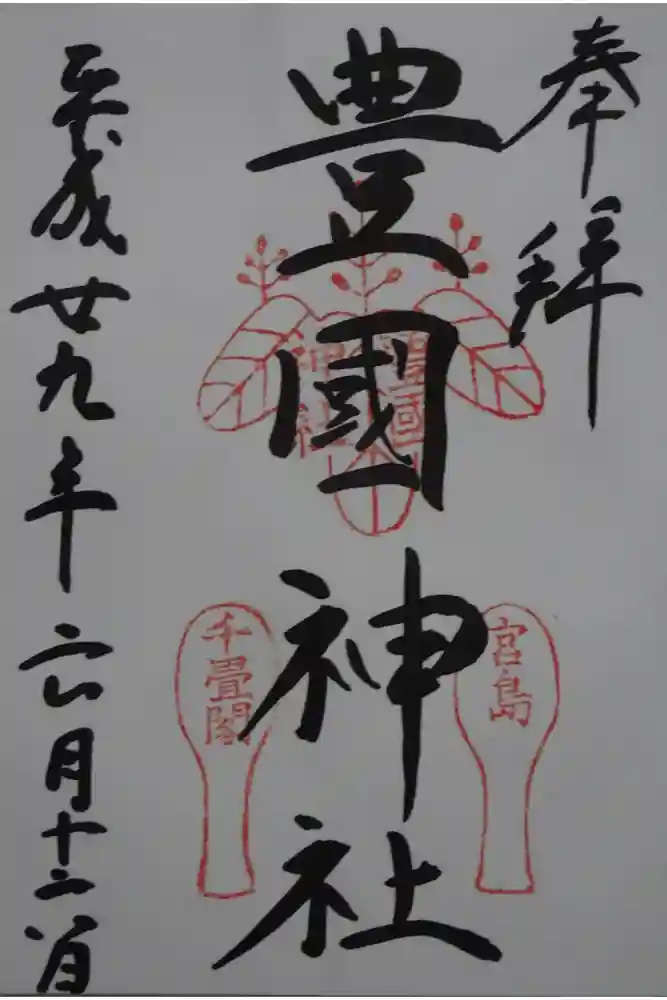 奉拝
豊國神社
豊國
神社
宮島
千畳閣
平成廿九年六月十六日